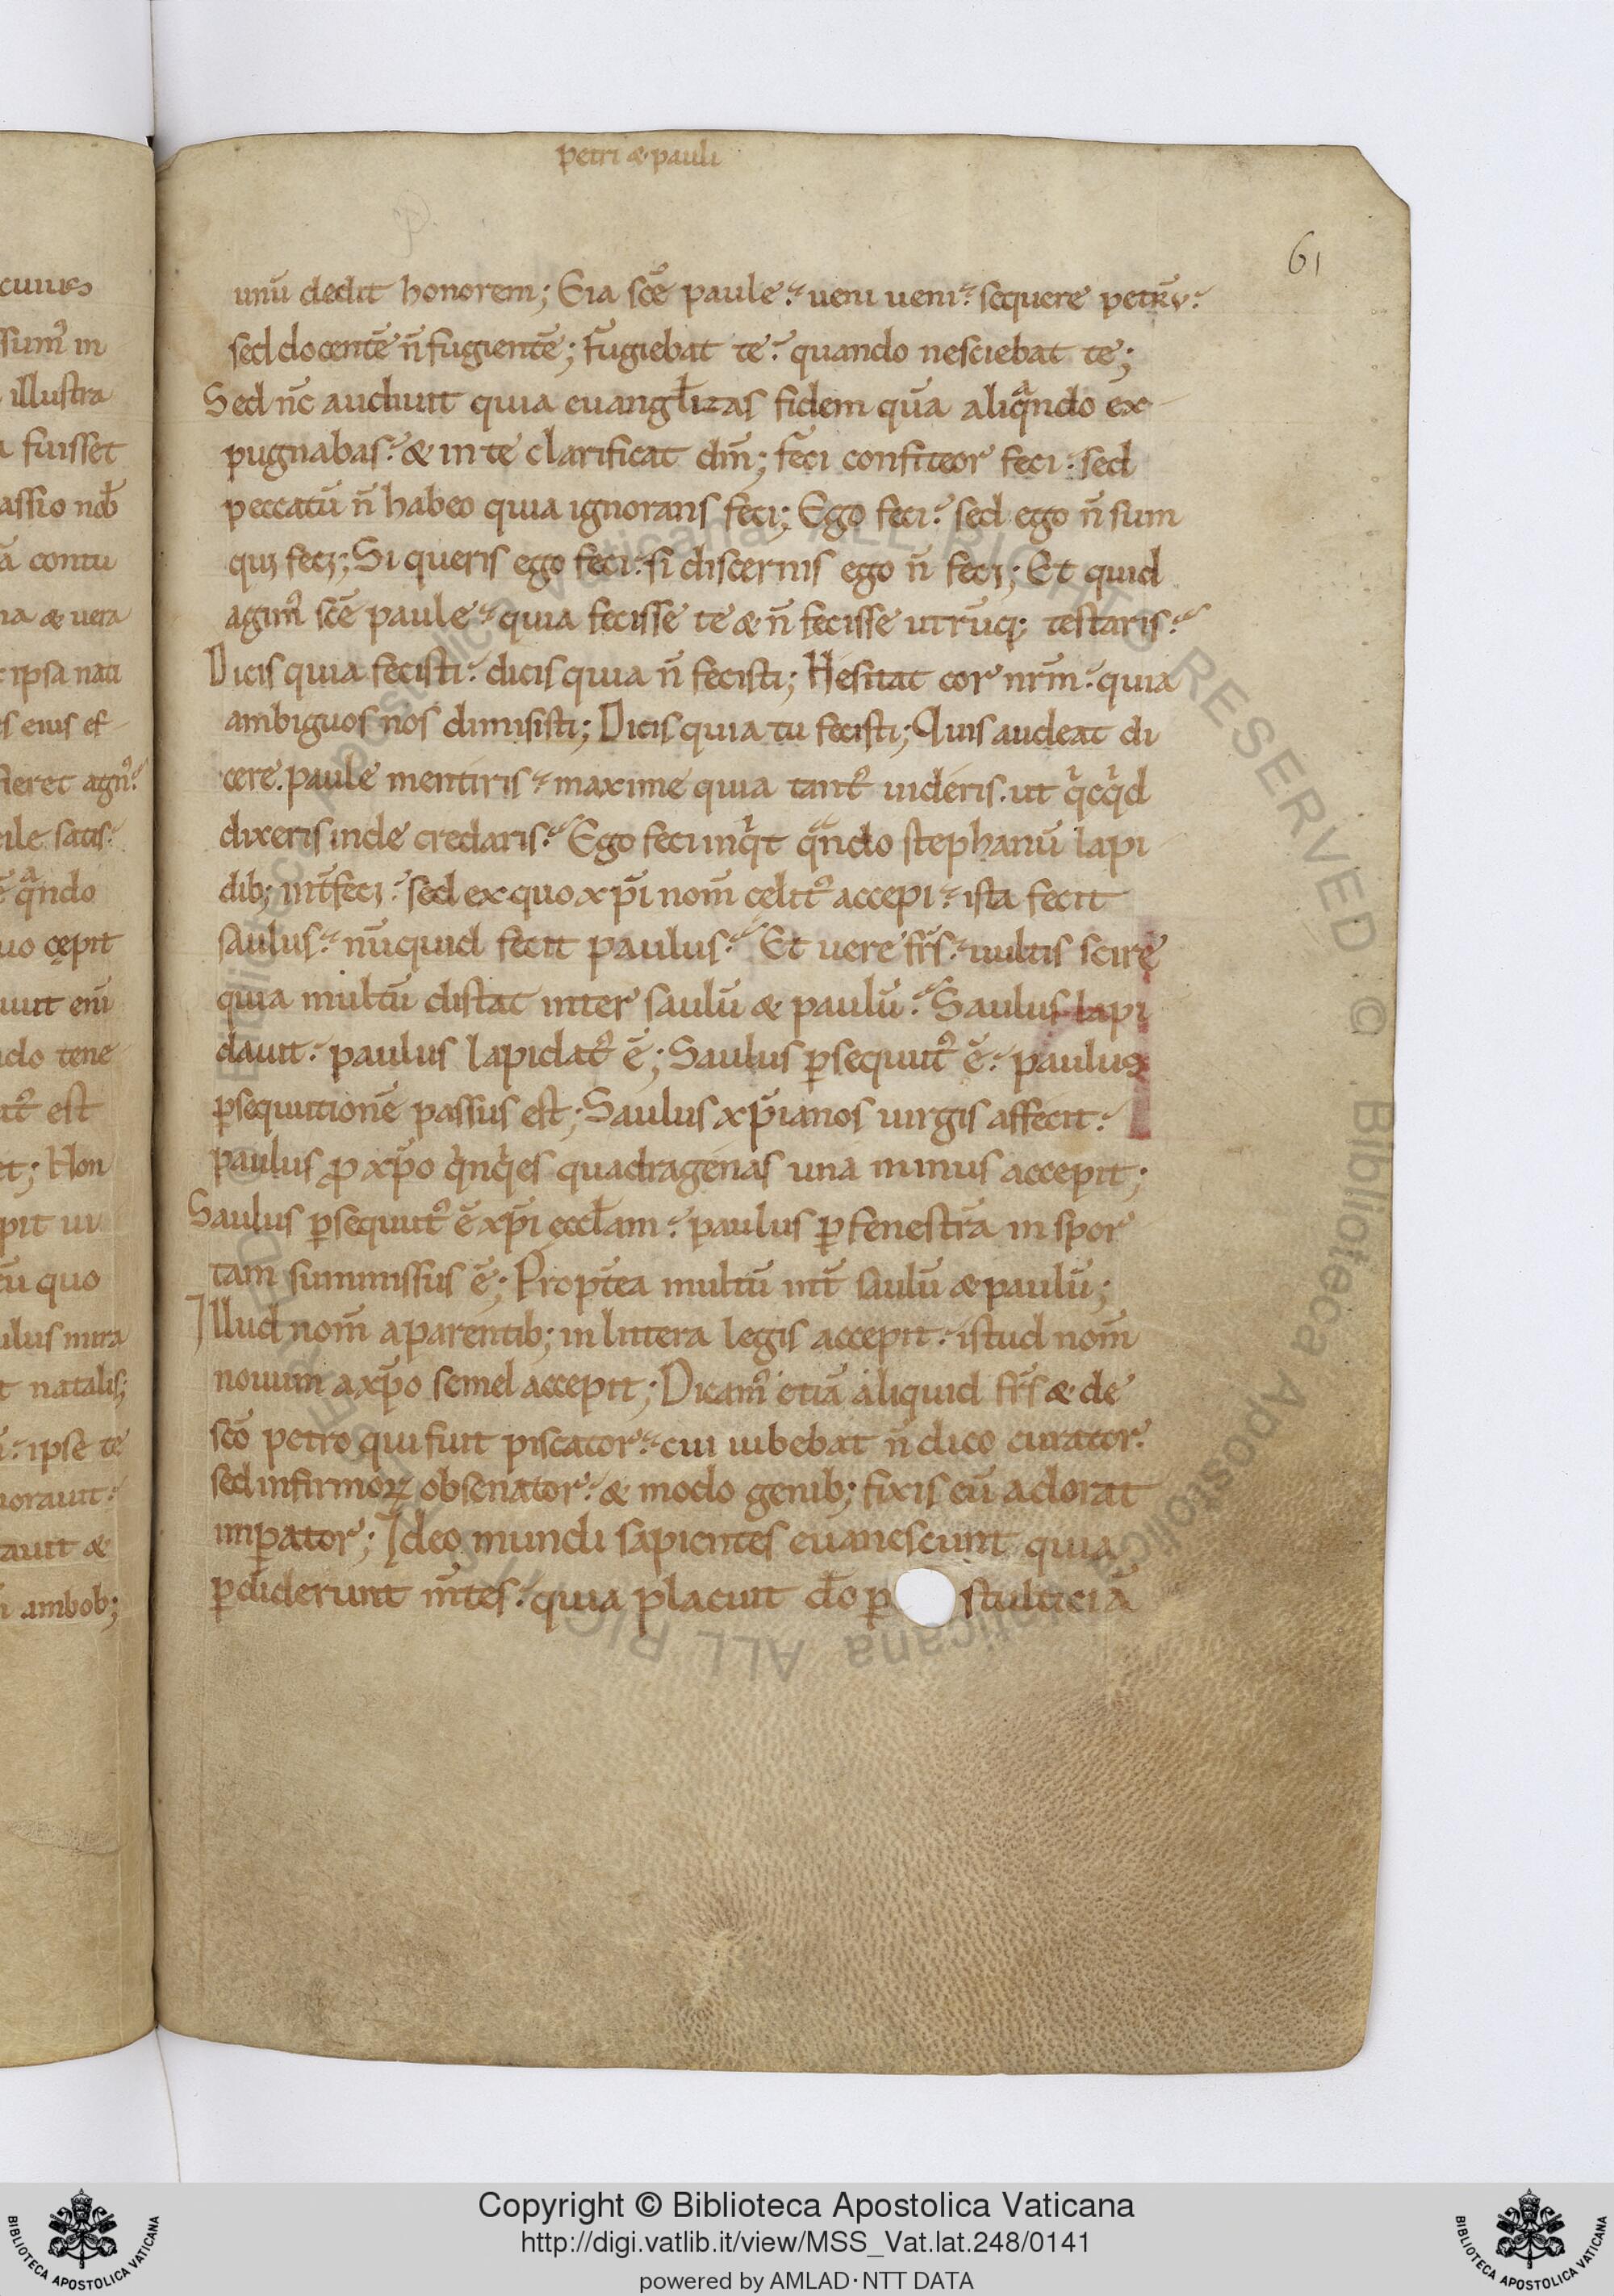 petri & pauli
61
unū dedit honorem; Eia sc̄e paule. ueni ueni. sequere petrū.
sed docentē n̄ fugientē; fugiebat te. quando nesciebat te;
Sed nc̄ audiuit quia euangl̄izas fidem quā aliqͣndo ex
pugnabas. & in te clarificat dm̄; feci confiteor feci. sed
peccatū n̄ habeo quia ignorans feci; Ego feci. sed ego n̄ sum
qui feci; Si queris ego feci. si discernis ego n̄ feci; Et quid
agim᾿ sc̄e paule. quia fecisse te & n̄ fecisse utrūq; testaris.
Dicis quia fecisti. dicis quia n̄ fecisti; Hesitat cor nrm̄. quia
ambiguos nos dimisisti; Dicis quia tu fecisti; Quis audeat di
cere. paule mentiris. maxime quia tant᾿ uideris. ut qͥcqͥd
dixeris inde credaris. Ego feci inqͥt qͣndo stephanū lapi
dib; int̄feci. sed ex quo xp̄i nom̄ celit᾿ accepi. ista fecit
saulus. nūquid fecit paulus. Et uere frs̄. uultis scire
quia multū distat inter saulū & paulū. Saulus lapi
dauit. paulus lapidat᾿ ē; Saulus ꝑsequut᾿ ē. paulus
ꝑsequutionē passus est; Saulus xp̄ianos uirgis affecit.
paulus ꝓ xp̄o qͥnqͥes quadragenas una minus accepit;
Saulus ꝑsequut᾿ ē xp̄i eccl̄am. paulus ꝑ fenestrā in spor
tam summissus ē; Propt̄ea multū int̄ saulū & paulū;
Illud nom̄ a parentib; in littera legis accepit. istud nom̄
nouum a xp̄o semel accepit; Dicam᾿ etiā aliquid frs̄ & de
sc̄o petro qui fuit piscator. cui iubebat n̄ dico curator.
sed infirmoꝝ obsenator. & modo genib; fixis eū adorat
imꝑator; Ideo mundi sapientes euanescunt quia
ꝑdiderunt m̄tes. quia placuit do̅ ꝑ stulticiā
cuius
sum᾿ in
illustra
a fuisset
assio nob̄
ā contu
na & uera
ipsa nati
s eius ef
fieret agn᾿.
cile satis.
qͣndo
uo cępit
uiut eni̅
ndo tene
ut᾿ est
et; Non
pit ui
eū quo
ulus mira
t natalis;
ipse te
norauit.
tauit &
ambob;
Copyright © Biblioteca Apostolica Vaticana
http://digi.vatlib.it/view/MSS_Vat.lat.248/0141
powered by AMLAD·NTT DATA
BIBLIOTECA APOSTOLICA VATICANA
BIBLIOTECA APOSTOLICA VATICANA